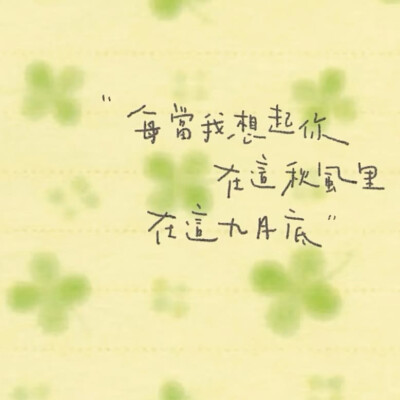 "每當我想起你
在這秋風里
在這九月底"